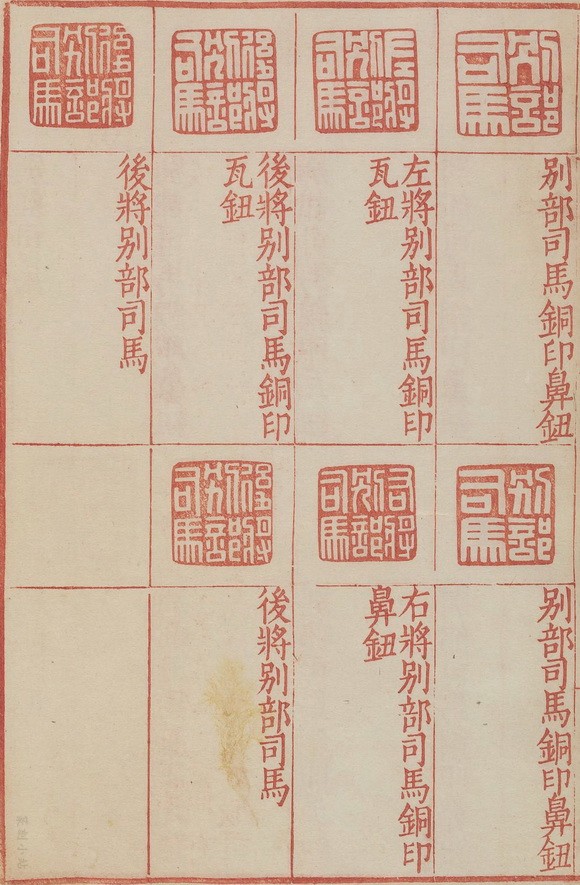 別部司馬
別部司馬銅印鼻鈕
左將別部司馬
左將別部司馬銅印
瓦鈕
後將別部司馬
後將別部司馬銅印
瓦鈕
後將別部司馬
後將別部司馬
別部司馬
別部司馬銅印鼻鈕
右將別部司馬
右將別部司馬銅印
鼻鈕
後將別部司馬
後將別部司馬